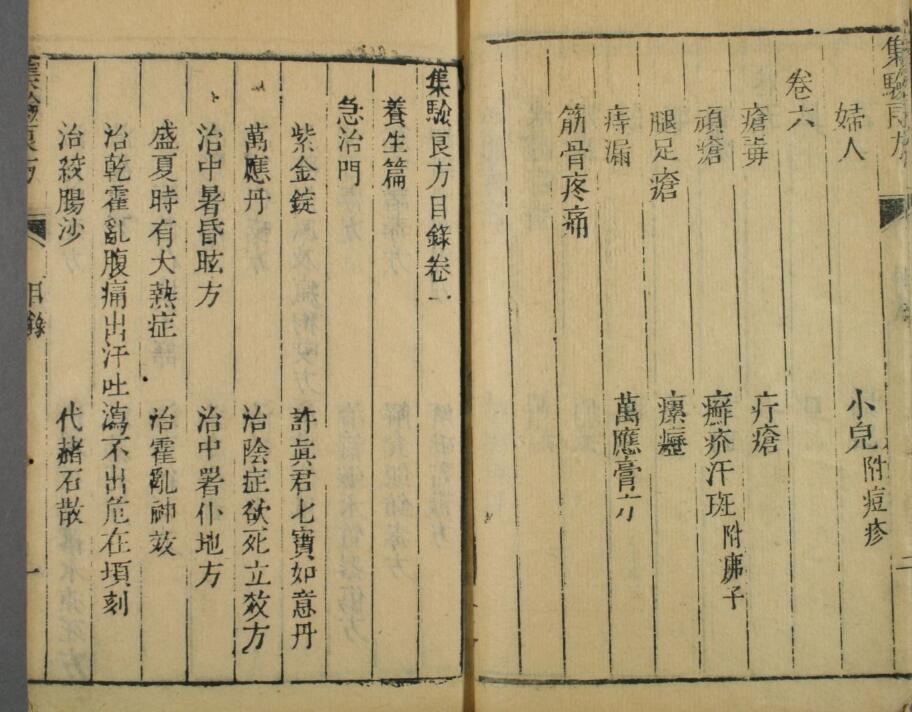 集驗良方
二
婦人 小兒附痘疹
卷六
瘡毒 疔瘡
頑瘡 癬疥汗斑附痱子
腿足瘡 瘰癧
痔漏 萬應膏方
筋骨疼痛
集驗良方目錄卷一
養生篇
急治門
紫金錠 許真君七寶如意丹
萬應丹 治陰症欲死立效方
治中暑昏眩方 治中署仆地方
盛夏時有大熱症 治霍亂神效
治乾霍亂腹痛出汗吐瀉不出危在頃刻
治絞腸沙 代赭石散
集驗良方
目錄
一